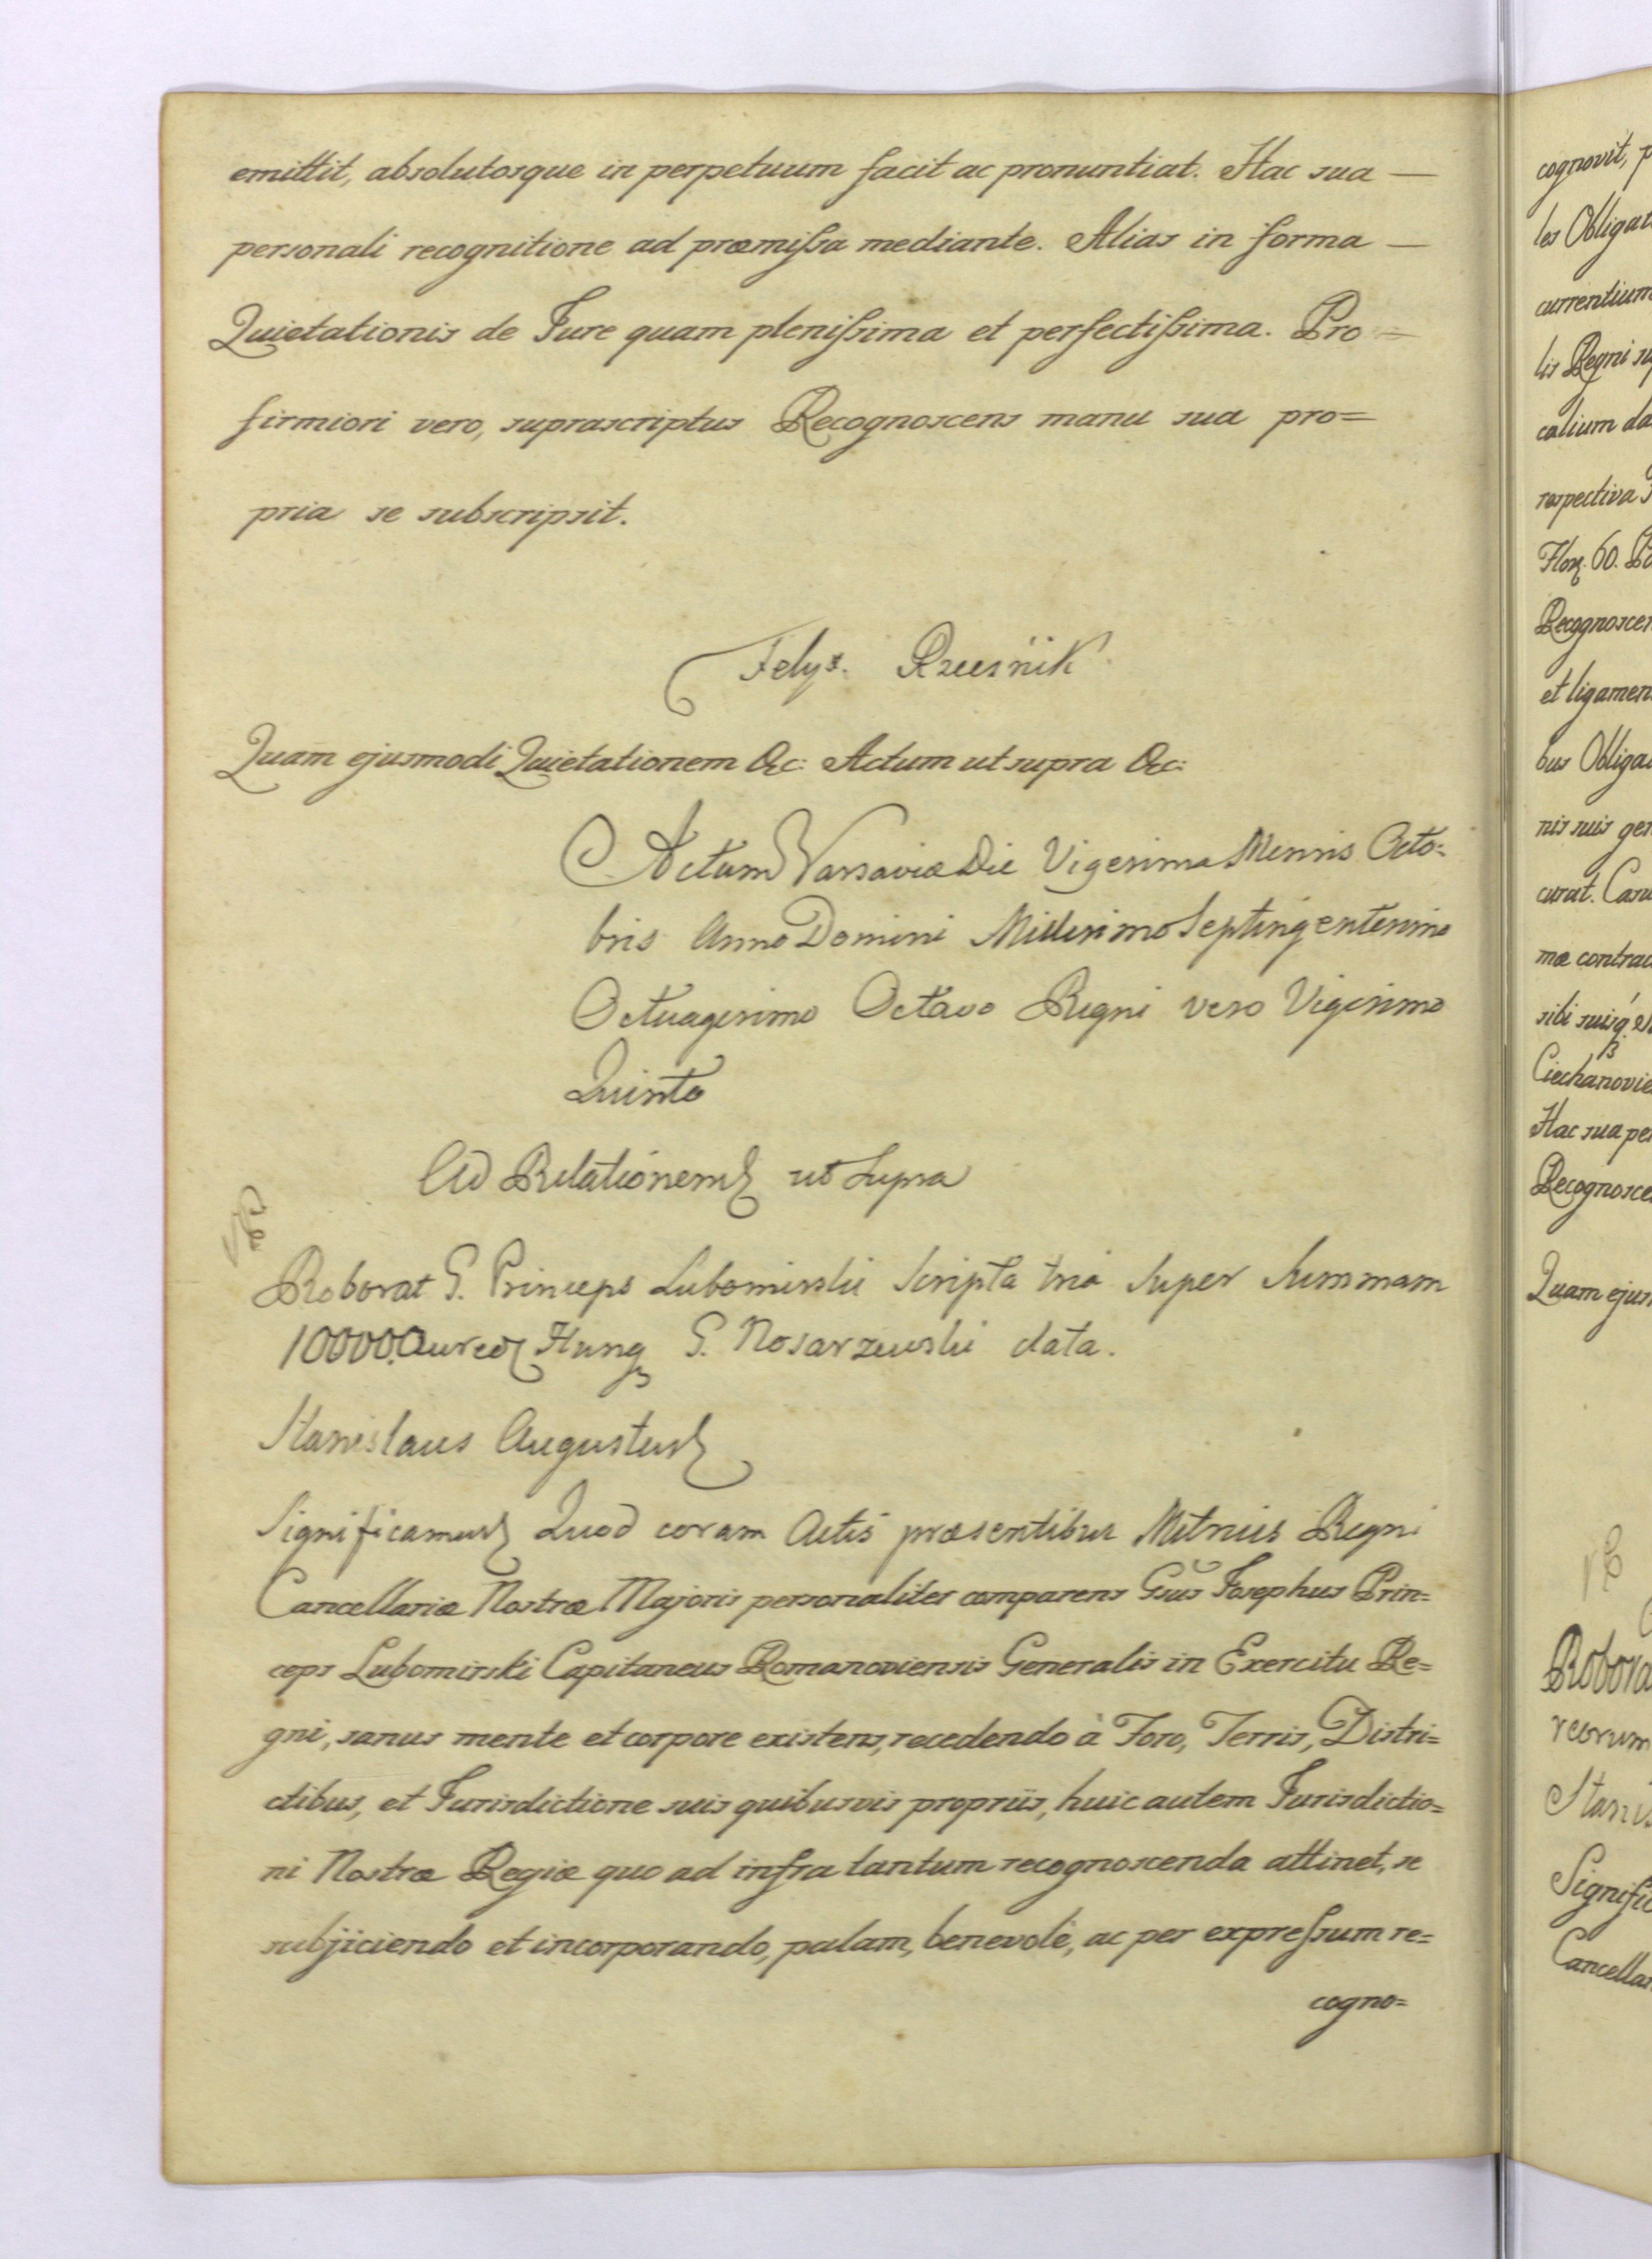 emittit, absolutosque in perpetuum facit ac pronuntiat. Hac sua —
personali recognitione ad præmissa mediante. Alias in forma —
Quietationis de Jure quam plenissima et perfectissima. Pro =
firmiori vero, suprascriptus Recognoscens manu sua pro=
pria se subscripsit.
Felyx.
Quam ejusmodi Quietationem &c: Actum ut supra &c:
Actum Varsaviæ Die Vigesima Mensis Octo=
bris Anno Domini Millesimo Septingentesimo
Octuagesimo Octavo Regni vero Vigesimo
Quinto
Ad Relationem ut Supra
Roborat G. Princeps Lubomirski Scripta tria Super Summam
10000. Aureor Hung G. Nosarzewski data.
Stanislaus Augustus
Significamus Quod coram Actis præsentibus Metrices Regni
Cancellariæ Nostræ Majoris personaliter comparens Gsus Josephus Prin=
ceps Lubomirski Capitaneus Romanoviensis Generalis in Exercitu Re=
gni, sanus mente et corpore existens, recedendo à Foro, Terris, Distri=
ctibus, et Jurisdictione suis quibusvis propriis, huic autem Jurisdictio=
ni Nostræ Regiæ quo ad infra tantum recognoscenda attinet, se
subjiciendo et incorporando, palam, benevolè, ac per expressum re=
cogno=
cognovit,
les
currentium
lis Regni
calium
respectiva
Flor. 60.
et
bus
nis suis
curat.
mæ
sibi
Hac sua
Quam
reorum